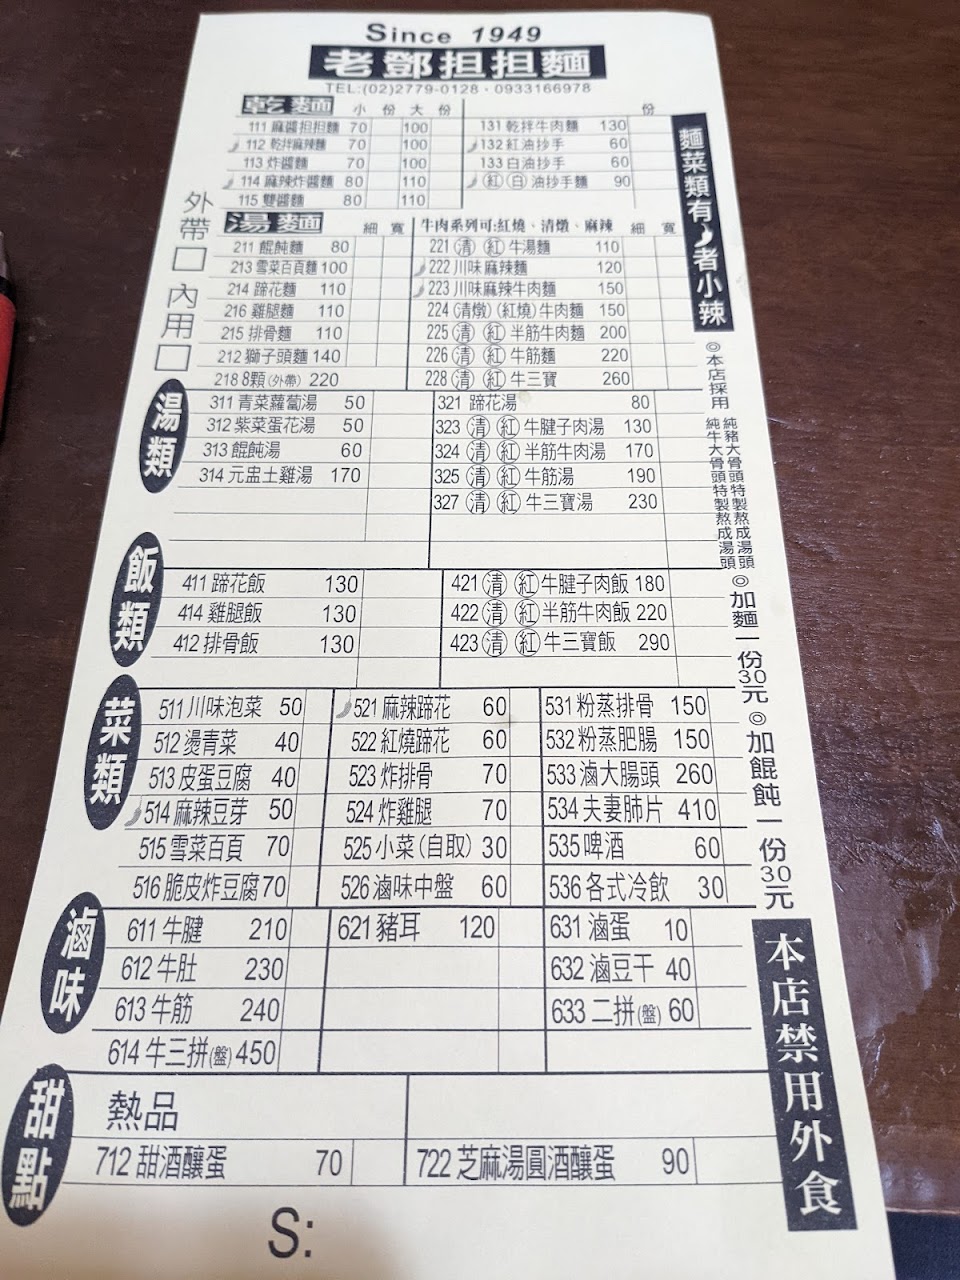 Since 1949
老鄧担担麵
TEL:(02)2779-0128 · 0933166978
乾麵 小份 大份
111 麻醬担担麵 70 100
112 乾拌麻辣麵 70 100
113 炸醬麵 70 100
114 麻辣炸醬麵 80 110
115 雙醬麵 80 110
份
131 乾拌牛肉麵 130
132 紅油抄手 60
133 白油抄手 60
紅 白 油抄手麵 90
湯麵 細 寬
211 餛飩麵 80
213 雪菜百頁麵 100
214 蹄花麵 110
216 雞腿麵 110
215 排骨麵 110
212 獅子頭麵 140
218 8顆(外帶) 220
牛肉系列可:紅燒、清燉、麻辣 細 寬
221 清 紅 牛湯麵 110
222 川味麻辣麵 120
223 川味麻辣牛肉麵 150
224 (清燉)(紅燒) 牛肉麵 150
225 清 紅 半筋牛肉麵 200
226 清 紅 牛筋麵 220
228 清 紅 牛三寶 260
外帶□ 內用□
湯類
311 青菜蘿蔔湯 50
312 紫菜蛋花湯 50
313 餛飩湯 60
314 元盅土雞湯 170
321 蹄花湯 80
323 清 紅 牛腱子肉湯 130
324 清 紅 半筋牛肉湯 170
325 清 紅 牛筋湯 190
327 清 紅 牛三寶湯 230
飯類
411 蹄花飯 130
414 雞腿飯 130
412 排骨飯 130
421 清 紅 牛腱子肉飯 180
422 清 紅 半筋牛肉飯 220
423 清 紅 牛三寶飯 290
菜類
511 川味泡菜 50
512 燙青菜 40
513 皮蛋豆腐 40
514 麻辣豆芽 50
515 雪菜百頁 70
516 脆皮炸豆腐 70
521 麻辣蹄花 60
522 紅燒蹄花 60
523 炸排骨 70
524 炸雞腿 70
525 小菜(自取) 30
526 滷味中盤 60
531 粉蒸排骨 150
532 粉蒸肥腸 150
533 滷大腸頭 260
534 夫妻肺片 410
535 啤酒 60
536 各式冷飲 30
滷味
611 牛腱 210
612 牛肚 230
613 牛筋 240
614 牛三拼(盤) 450
621 豬耳 120
631 滷蛋 10
632 滷豆干 40
633 二拼(盤) 60
甜點
熱品
712 甜酒釀蛋 70
722 芝麻湯圓酒釀蛋 90
S:
麵菜類有者小辣
◎本店採用
純豬大骨頭特製熬成湯頭
純牛大骨頭特製熬成湯頭
◎加麵一份30元
◎加餛飩一份30元
本店禁用外食